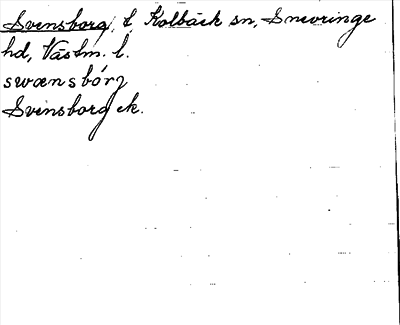 Svensborg, t, Kolbäck sn, Snevringe
hd, Västm. l.
swænsbórj
Svensborg ek.